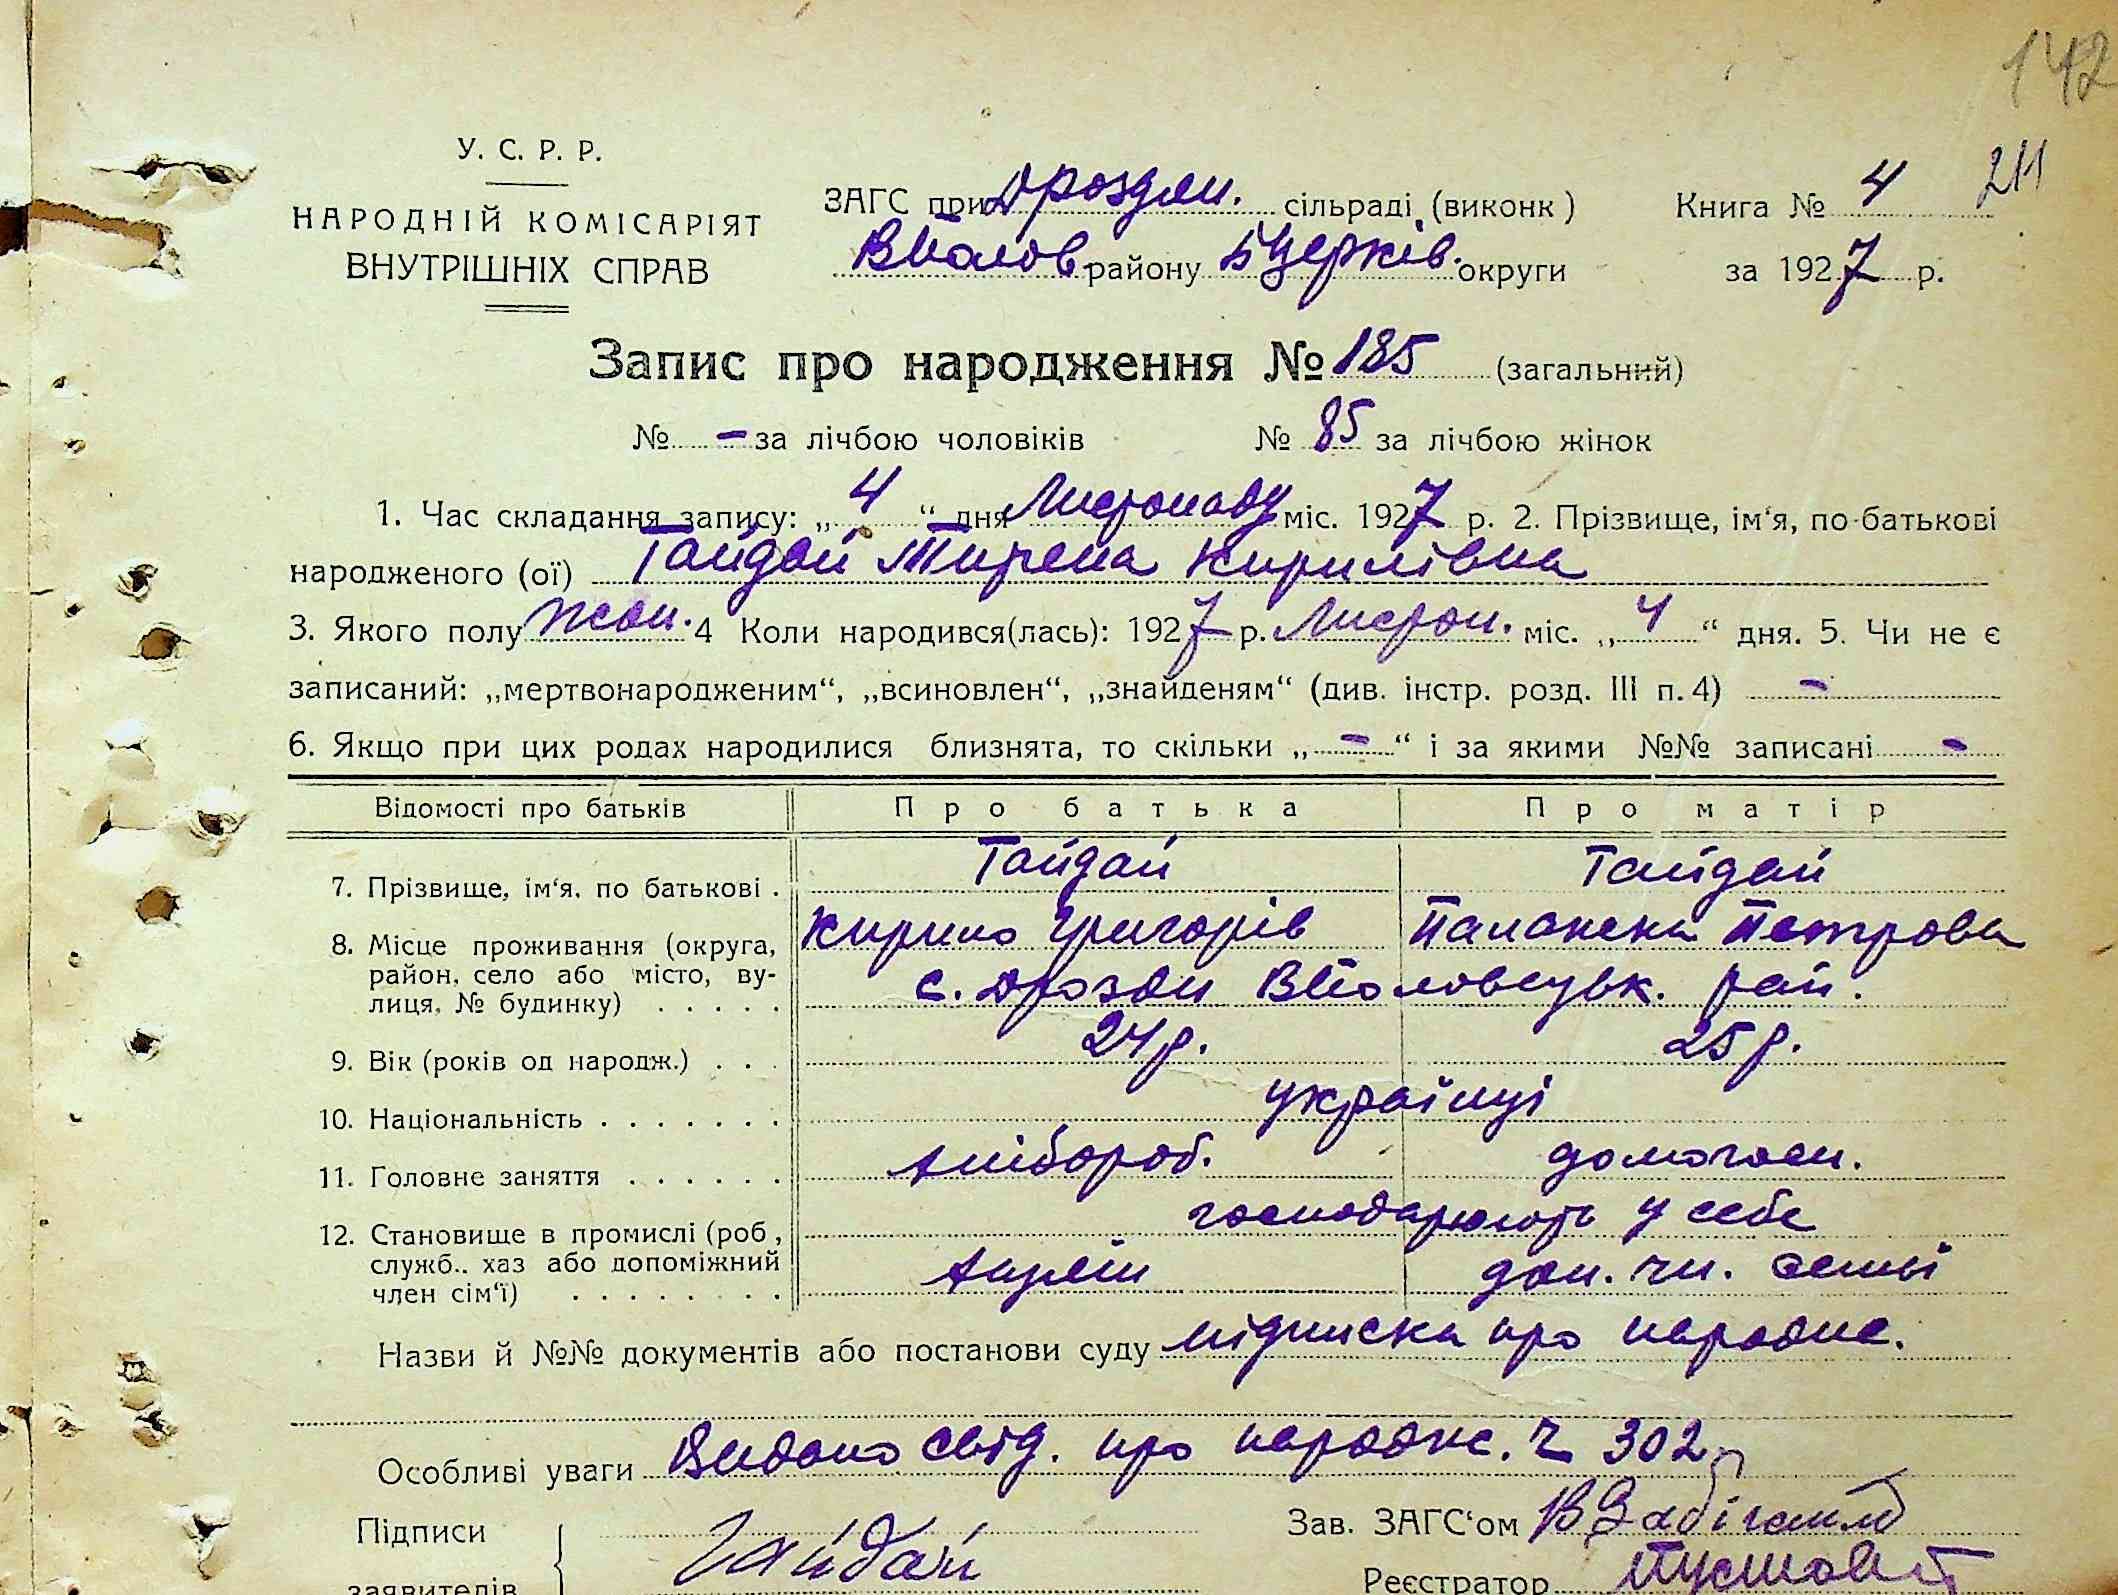 142
У. С. Р. Р.
НАРОДНІЙ КОМІСАРІЯТ
ВНУТРІШНІХ СПРАВ
ЗАГС при Дроздян. сільраді (виконк)
Вполов. району БЦерків. округи
Книга № 4 211
за 1927 р.
Запис про народження № 185 (загальний)
№ - за лічбою чоловіків № 85 за лічбою жінок
1. Час складання запису: „ 4 “ дня Листопаду міс. 1927 р. 2. Прізвище, ім‘я, по-батькові
народженого (ої) Гайдай Кирилівна
3. Якого полу жон. 4 Коли народився(лась): 1927 р. Листоп. міс. „ 4 “ дня. 5. Чи не є
записаний: „мертвонародженим“, „всиновлен“, „знайденям“ (див. інстр. розд. III п. 4) -
6. Якщо при цих родах народилися близнята, то скільки „ - “ і за якими №№ записані -
Відомості про батьків Про батька Про матір
7. Прізвище, ім‘я, по батькові . Гайдай Гайдай
Кирило Григорів Палажка Петрова
8. Місце проживання (округа,
район, село або місто, ву-
лиця, № будинку) . . . . . с. Дрозди Вполовецьк. рай.
9. Вік (років од народж.) . . . 24 р. 25 р.
10. Національність . . . . . . . українці
11. Головне заняття . . . . . . хлібороб. домогосп.
господарюють у себе
12. Становище в промислі (роб,
служб.. хаз або допоміжний
член сім‘ї) . . . . . . . . хазяїн доп. чл. семьі
Назви й №№ документів або постанови суду підписка про народже.
Особливі уваги Видано свід. про народж. Ч 302
Підписи
заявителів
Гайдай
Зав. ЗАГС‘ом
Реєстратор